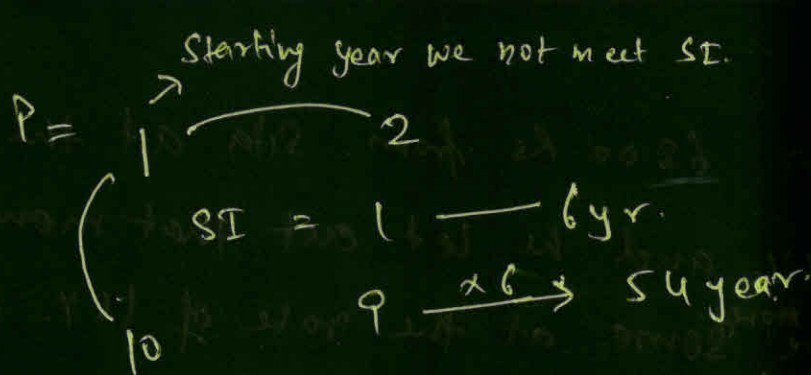 Starting year we not meet SI.
P = 1 2
SI = 1 — 6yr.
9 ×6 → 54 year.
10